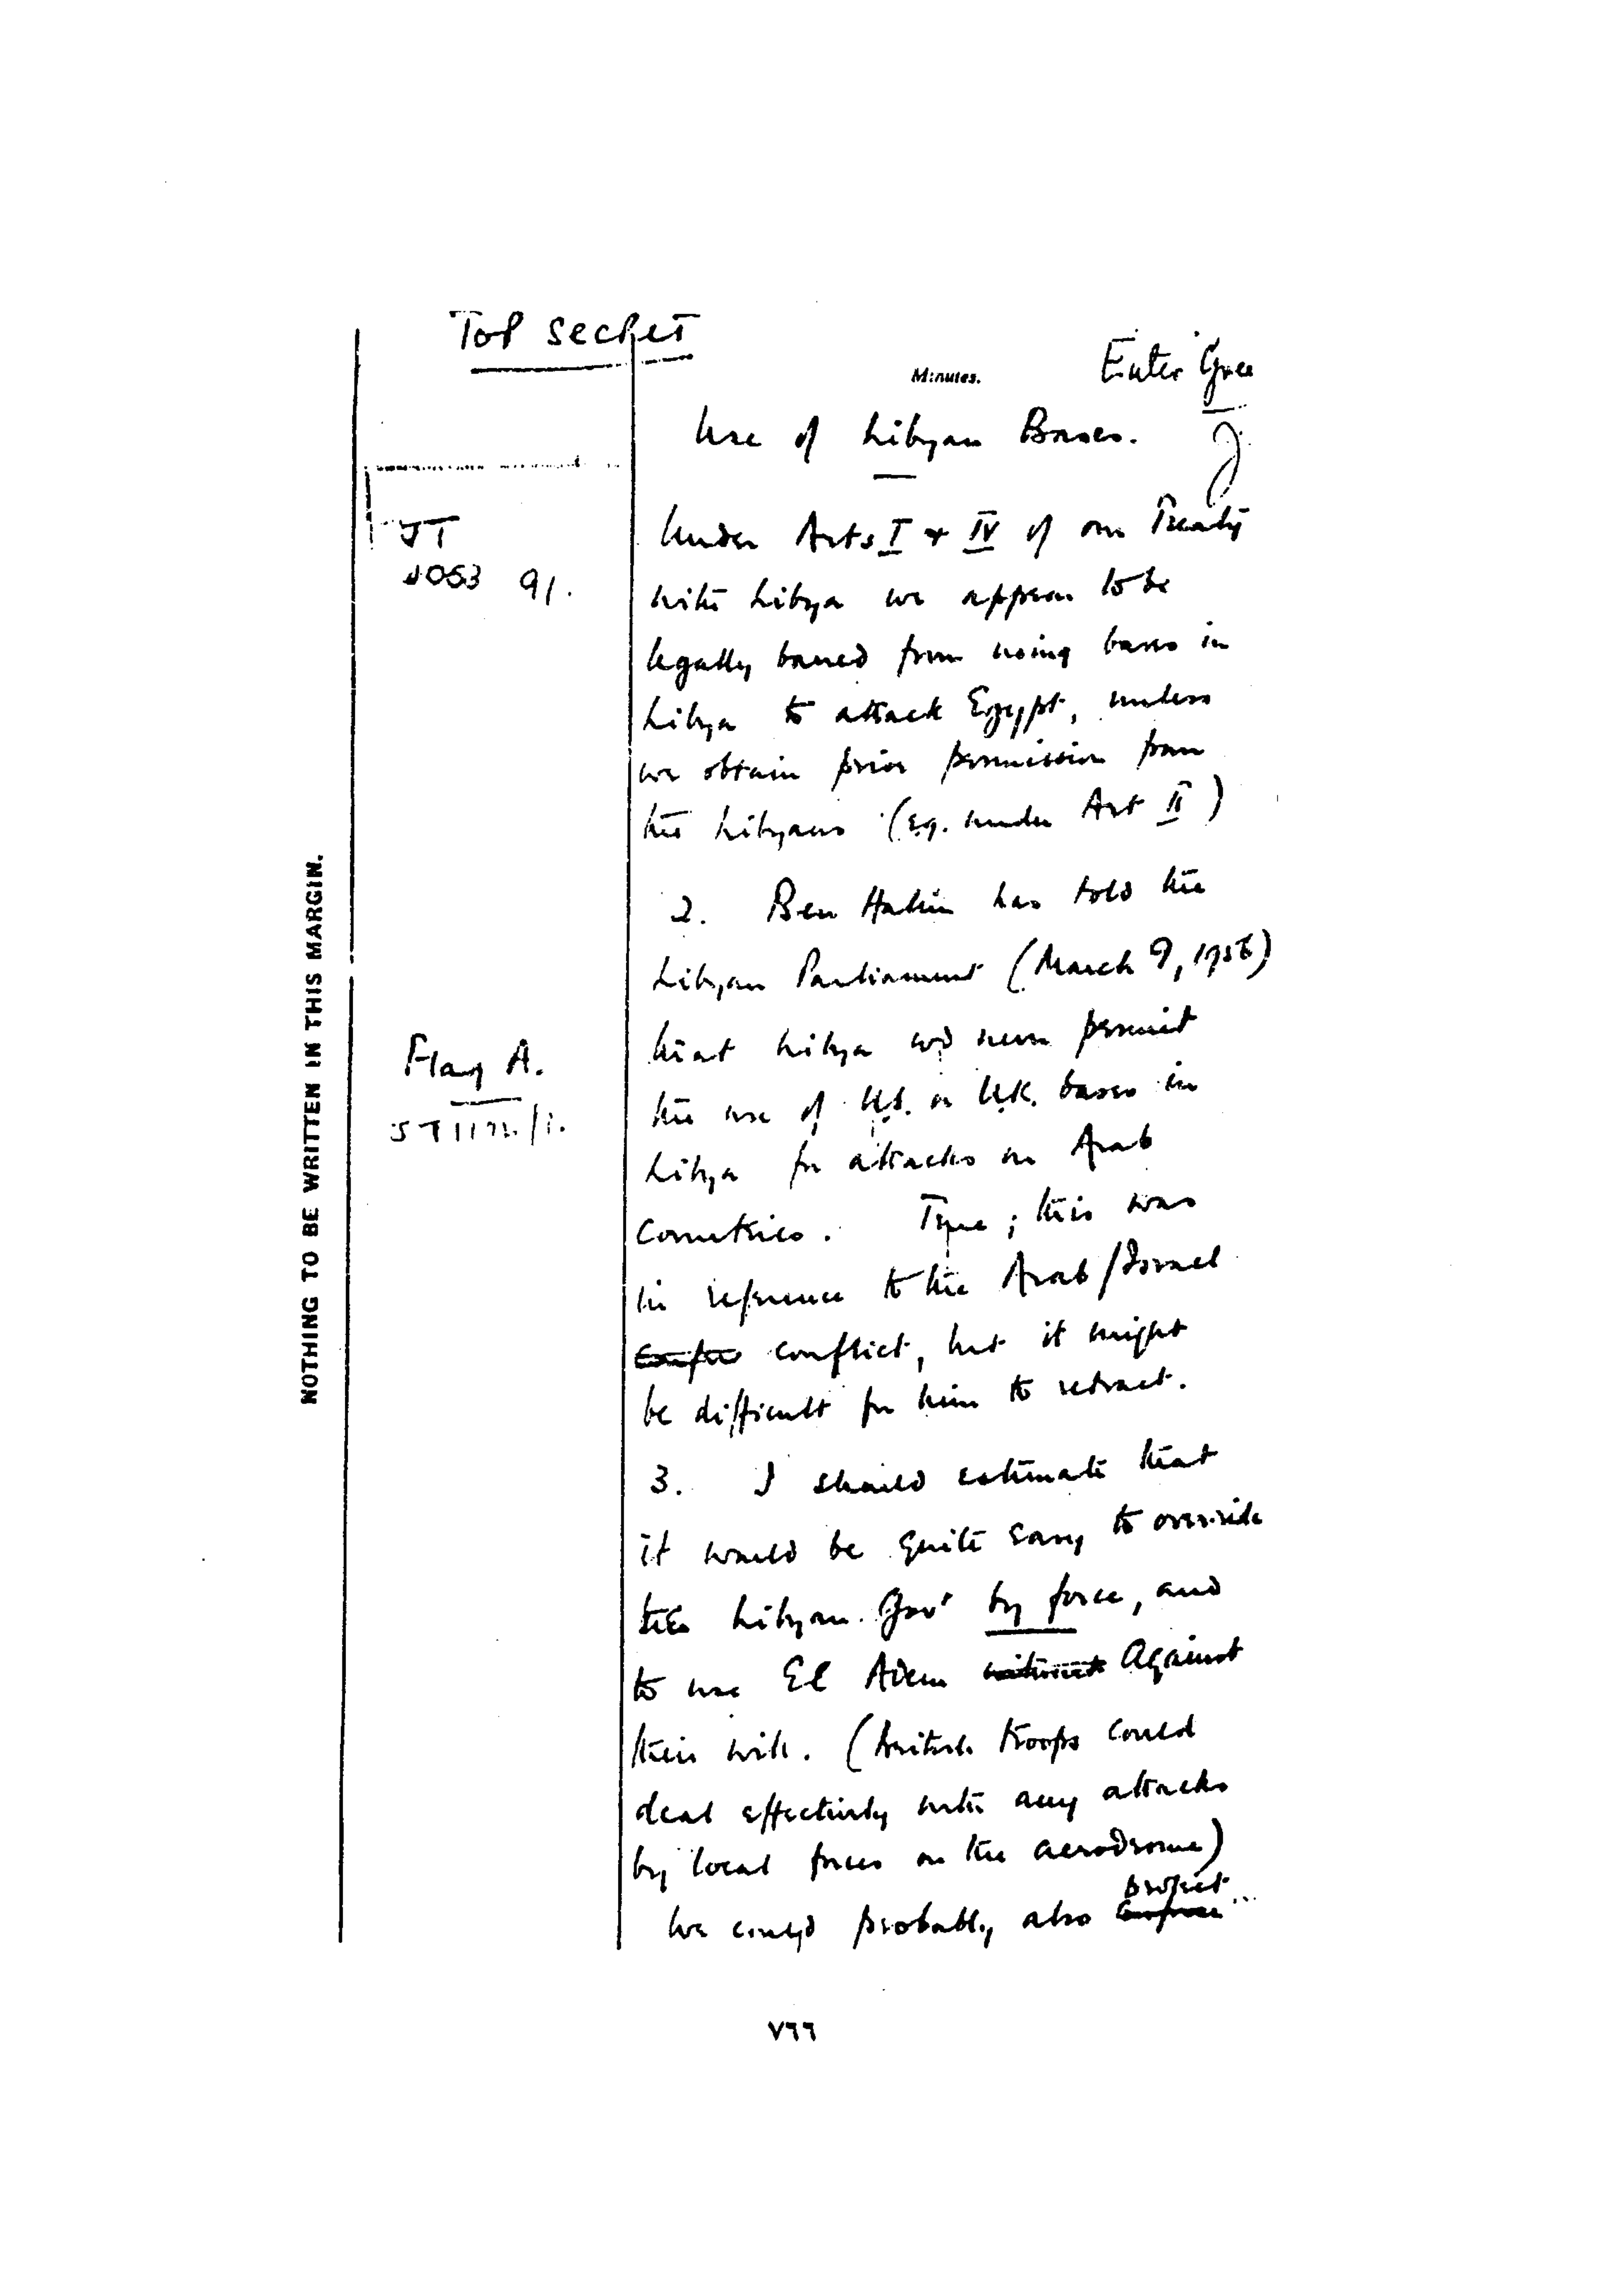 Top Secret
Minutes.
Enter Gree
Use of Libyan Bases.
JT
1053 91.
Under Arts I & IV of our Treaty
with Libya we appear to be
legally barred from using bases in
Libya to attack Egypt, unless
we obtain prior permission from
the Libyans (e.g. under Art II)
2. Ben Halim has told the
Libyan Parliament (March 9, 1956)
Flag A.
that Libya wd never permit
the use of U.S. or U.K. bases in
Libya for attacks on Arab
Countries. True; this was
in reference to the Arab/Israel
conflict, but it might
be difficult for him to retract.
3. I should estimate that
it would be quite easy to over-ride
the Libyan Govt by force, and
to use El Adem without Against
their will. (British troops could
deal effectively with any attacks
by local forces on the aerodrome)
We could probably also protect
NOTHING TO BE WRITTEN IN THIS MARGIN.
٧٦٦